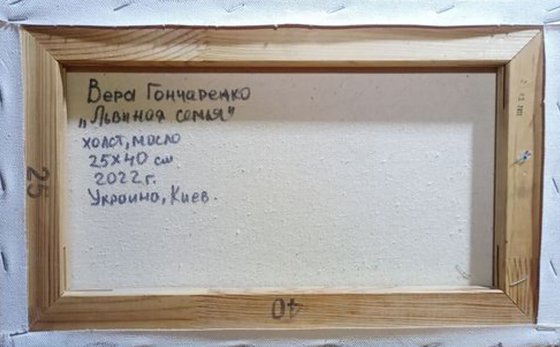 Вера Гончаренко
„Львиная семья"
холст, масло
25х40 см
2022 г.
Украина, Киев.
25
40